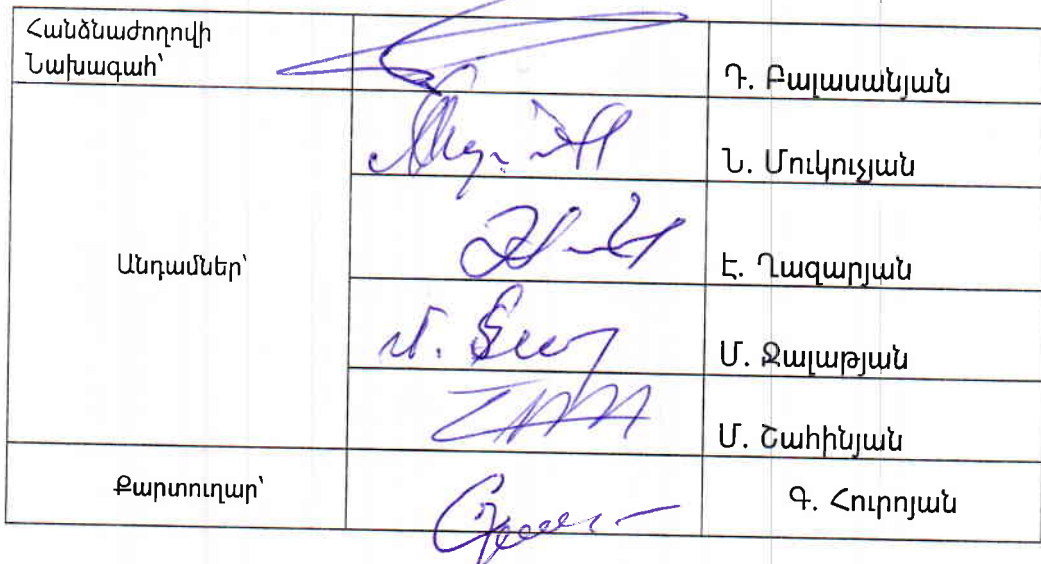 Հանձնաժողովի
Նախագահ՝
Դ. Բալասանյան
Ն. Մուկուչյան
Անդամներ՝
Է. Ղազարյան
Մ. Ջալաթյան
Մ. Շահինյան
Քարտուղար՝
Գ. Հուրոյան